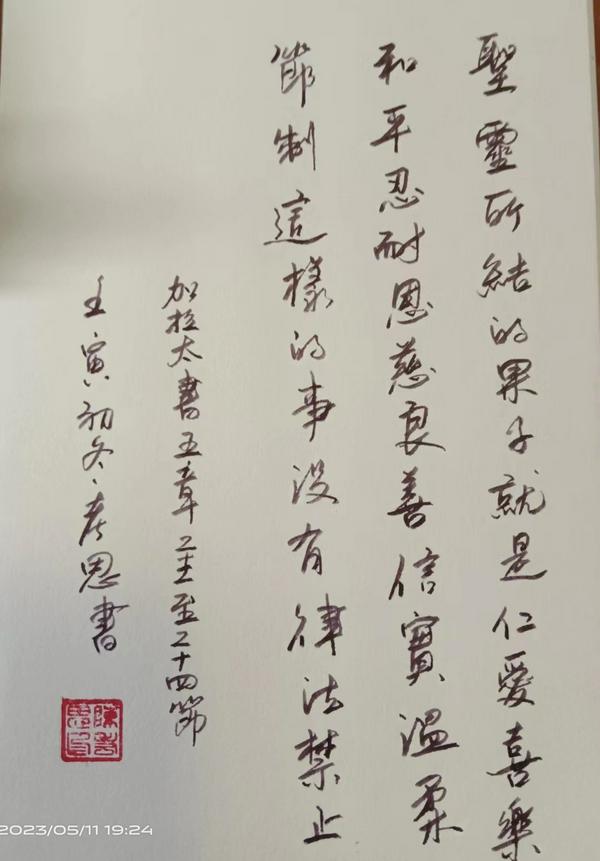 聖靈所結的果子就是仁愛喜樂
和平忍耐恩慈良善信實溫柔
節制這樣的事沒有律法禁止
加拉太書五章二十二至二十四節
壬寅初冬孝恩書
2023/05/11 19:24